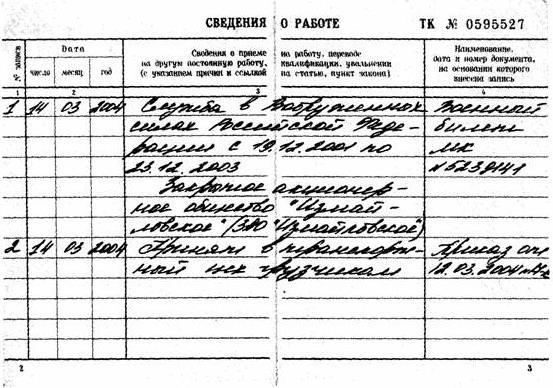 СВЕДЕНИЯ О РАБОТЕ ТК № 0595527
№ записи Дата Сведения о приеме на работу, переводе Наименование,
на другую постоянную работу, квалификации, увольнении дата и номер документа,
число месяц год (с указанием причин и ссылкой на статью, пункт закона) на основании которого
внесена запись
1 2 3 4
1 14 03 2004 Служба в Вооруженных Военный
силах Российской Феде- билет
рации с 19.12.2001 по МК
23.12.2003 №5239141
Закрытое акционер-
ное общество "Измай-
ловское" (ЗАО "Измайловское")
2 14 03 2004 Принят в транспорт- Приказ от
ный цех грузчиком 12.03.2004
2 3